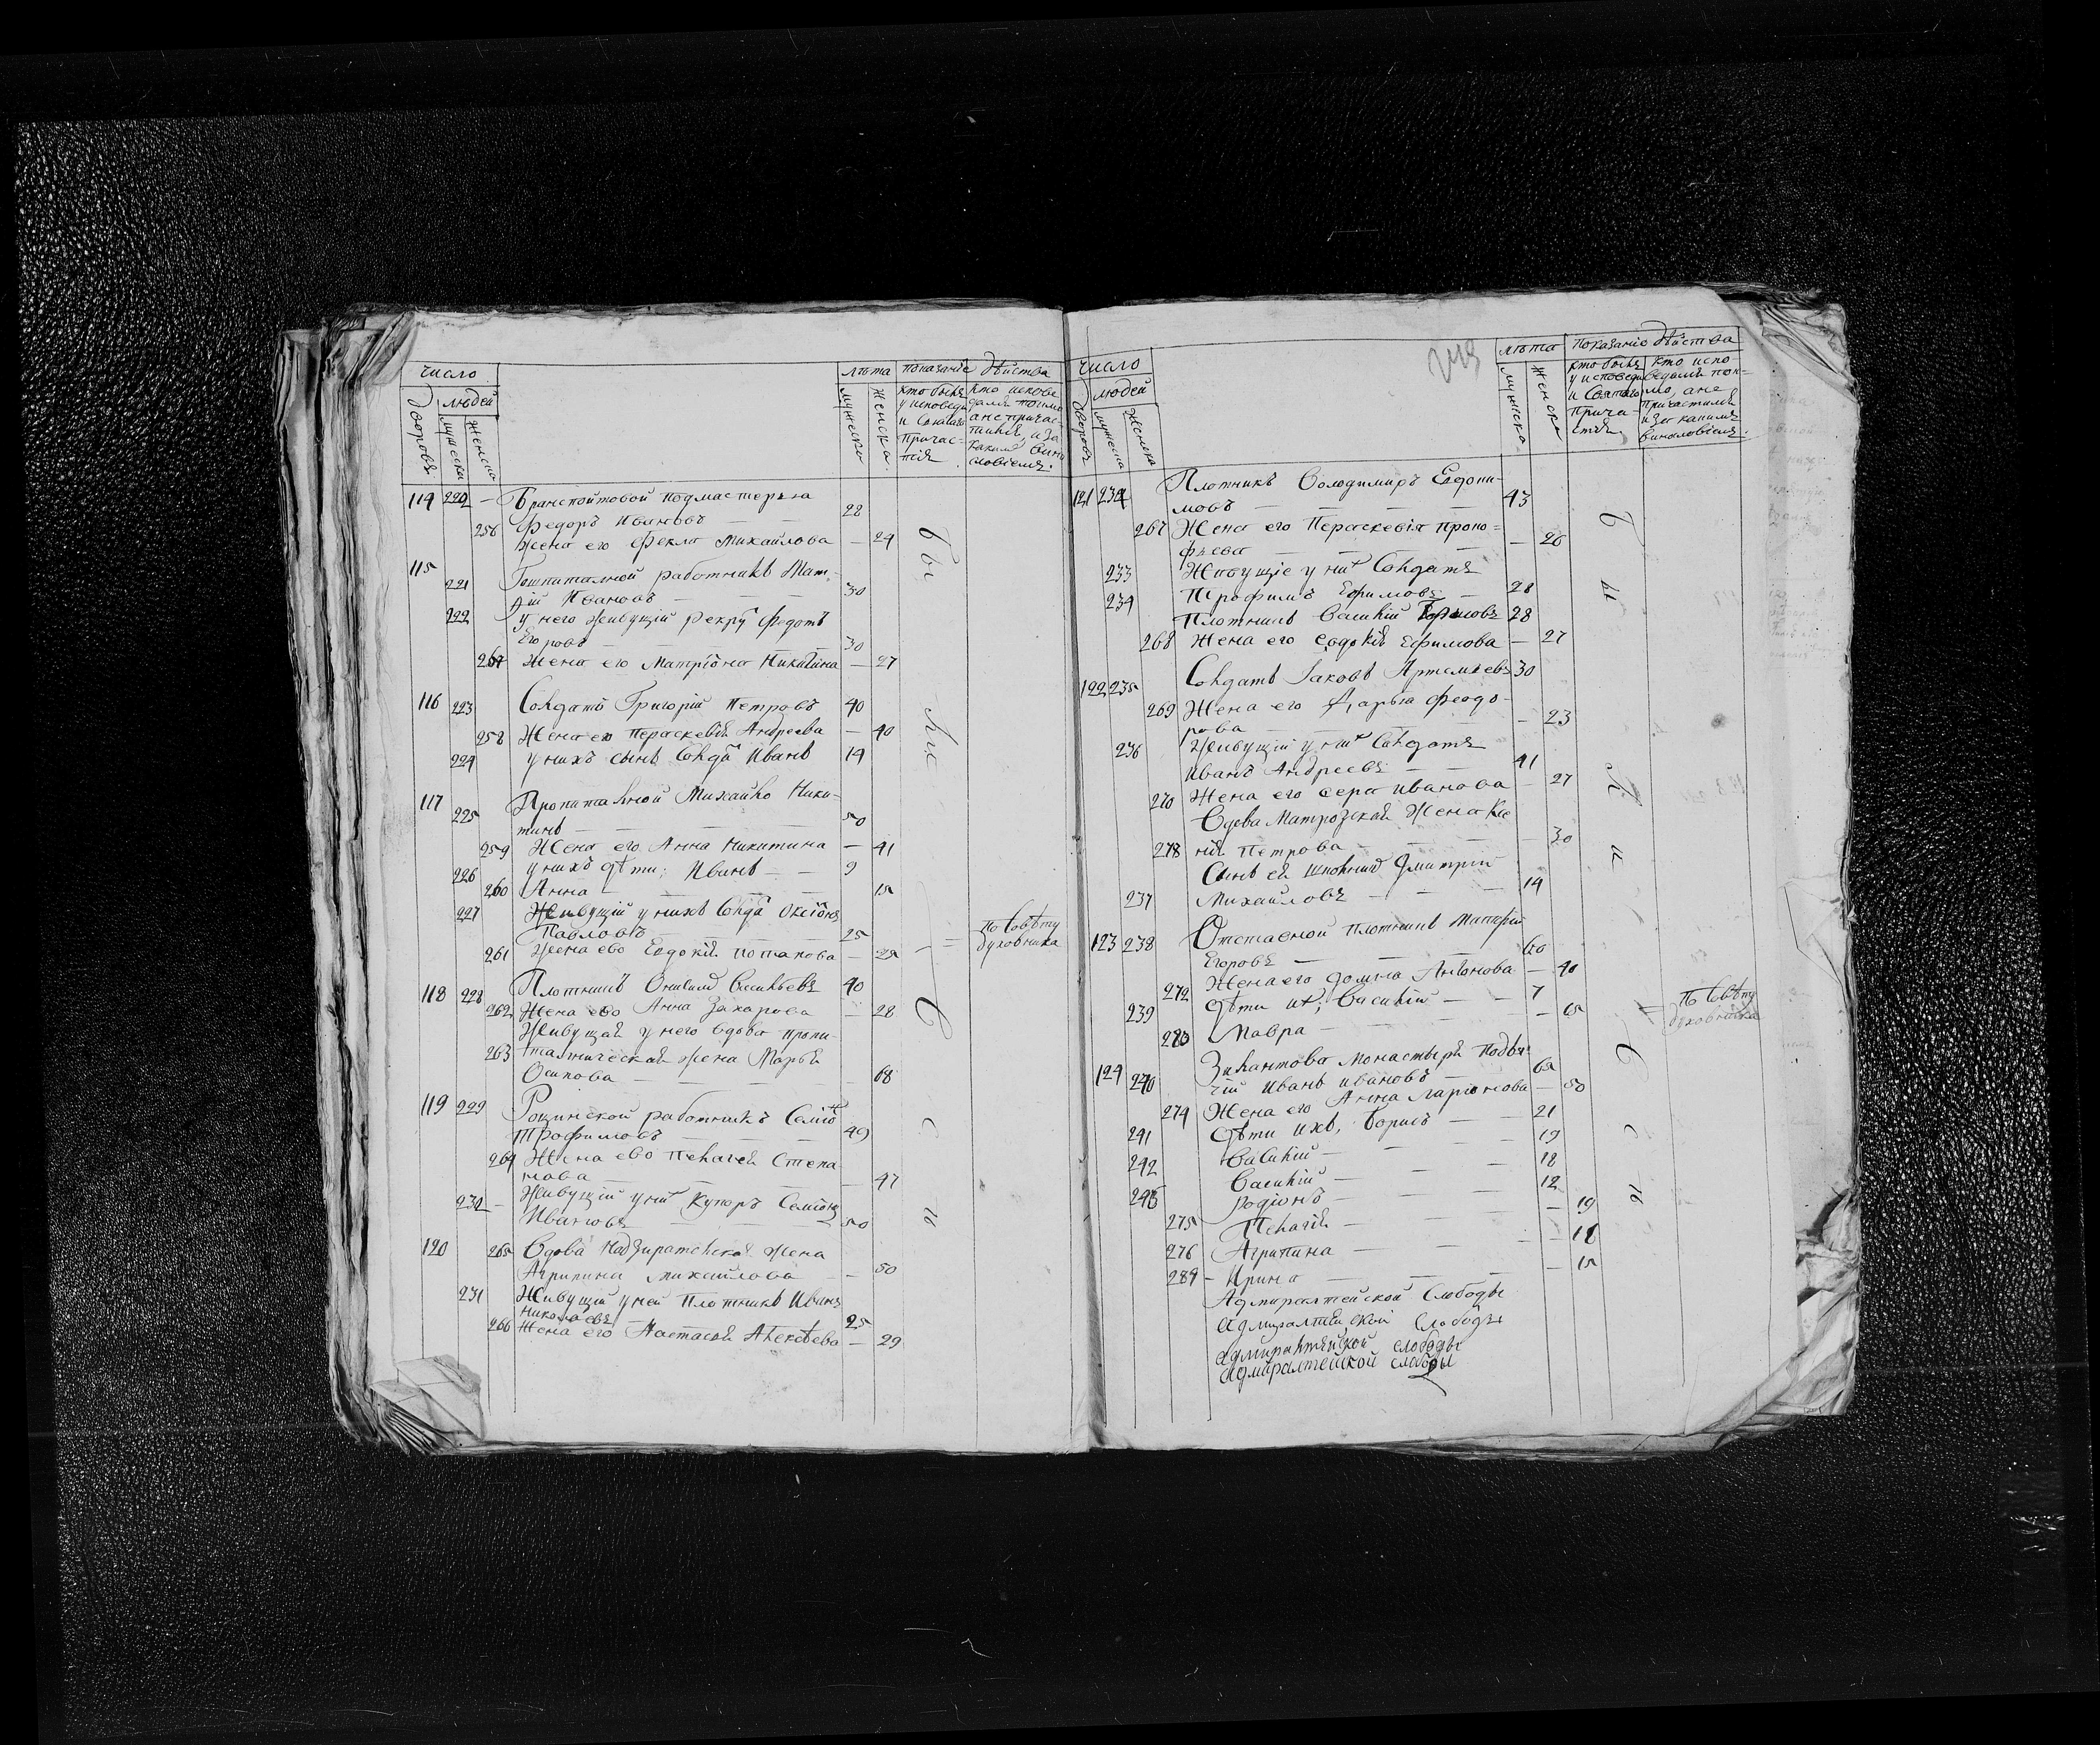 число
людей
дворовъ
мужеска
женска
лѣта
мужеска
женска.
показание дѣйства
кто былъ у исповеди и святаго причастия
кто испове
дался токмо
а не причас
тился, и за
каким вино
словіемъ.
114 220 — Транспойтовой подмастерья
Федоръ Ивановъ — — 28
256 жена его Фекла Михайлова — 24
115 221 Гошпиталной работникъ Мат
фій Ивановъ — — — 30
222 у него живущій рекру Федотъ
Егоровъ — — — 30
257 жена его Матріона Никитина — 27
116 223 Солдатъ Григорій Петровъ 40
258 Жена ево Пераскевія Андреева — 40
224 у нихъ сынъ Солда Иванъ 14
117 225 Пропиталной Михайло Ники=
тинъ — — — 50
259 Жена его Анна Никитина — 41
226 у нихъ дѣти; Иванъ — — 9
260 Анна — — — 15
227 Живущій у нихъ Солда
Павловъ — — — 25
261 Жена ево Евдокія Потапова — 25
= По совѣту
духовника
118 228 Плотникъ Онисимъ Васильевъ 40
262 Жена ево Анна Захарова — 28
Живущая у него вдова пропи
263 талническая жена Марья
Осипова — — — 68
119 229 Рощинской работникъ Семіо
Трофимовъ — — 49
264 Жена ево Пелагея Степа
нова — — — 47
230 — Живущій у ни Купоръ Семіонъ
Ивановъ — — 50
120 265 Вдова Надзирателская жена
Агрипина Михайлова — — 50
231 Живущій у ней Плотникъ Иванъ
Николаевъ — 25
266 Жена его Настасья Алексѣева — 29
Были
и с
число
людей
дворовъ
мужеска
женска
лѣта
мужеска
женска
показаніе дѣйства
кто былъ
у исповеди
и Святаго
прича
стія
кто испо
ведался ток=
мо, а не
причастился
и за какимъ
винословіемъ.
121 232 Плотникъ Володимиръ Евдоки
мовъ — — — 43
267 Жена его Пераскевія Проко=
фьева — — — 26
233 Живущіе у ни Солдатъ
234 Трофимъ Ефимовъ — 28
Плотникъ Василій 28
268 Жена его Евдокія Ефимова — 27
122 235 Солдатъ Іаковъ Артемьевъ 30
269 Жена его Дарья Феодо
рова — — 23
236 Живущій у ни Солдатъ
Иванъ Андреевъ — — 41
270 Жена его Вера Иванова — 27
Вдова Матрозская ЖенаКсе
278 нія Петрова — — 30
Сынъ ея школникъ Дмитрій
237 Михайловъ — — 14
123 238 Отставной плотникъ
Егоровъ — — — 60
272 Жена его Домна Антонова — 40
239 Дѣти их; Василій — — 7
273 Мавра — — — 6
= По совѣту
духовника
124 240 Зилантова монастыря Подья
чій Иванъ Ивановъ — 65
274 Жена его Анна Ларіонова — 50
241 Дѣти ихъ, Борисъ — 21
242 Василій — — 19
Василій — — 18
243 Родіонъ — — 12
275 Пелагія — — — 19
276 Агрипина — — — 18
Ирина — — — 15
Адмиралтейской Слободы
адмиралтейской Слободы
адмиралтейской слободы
адмиралтейской слободы